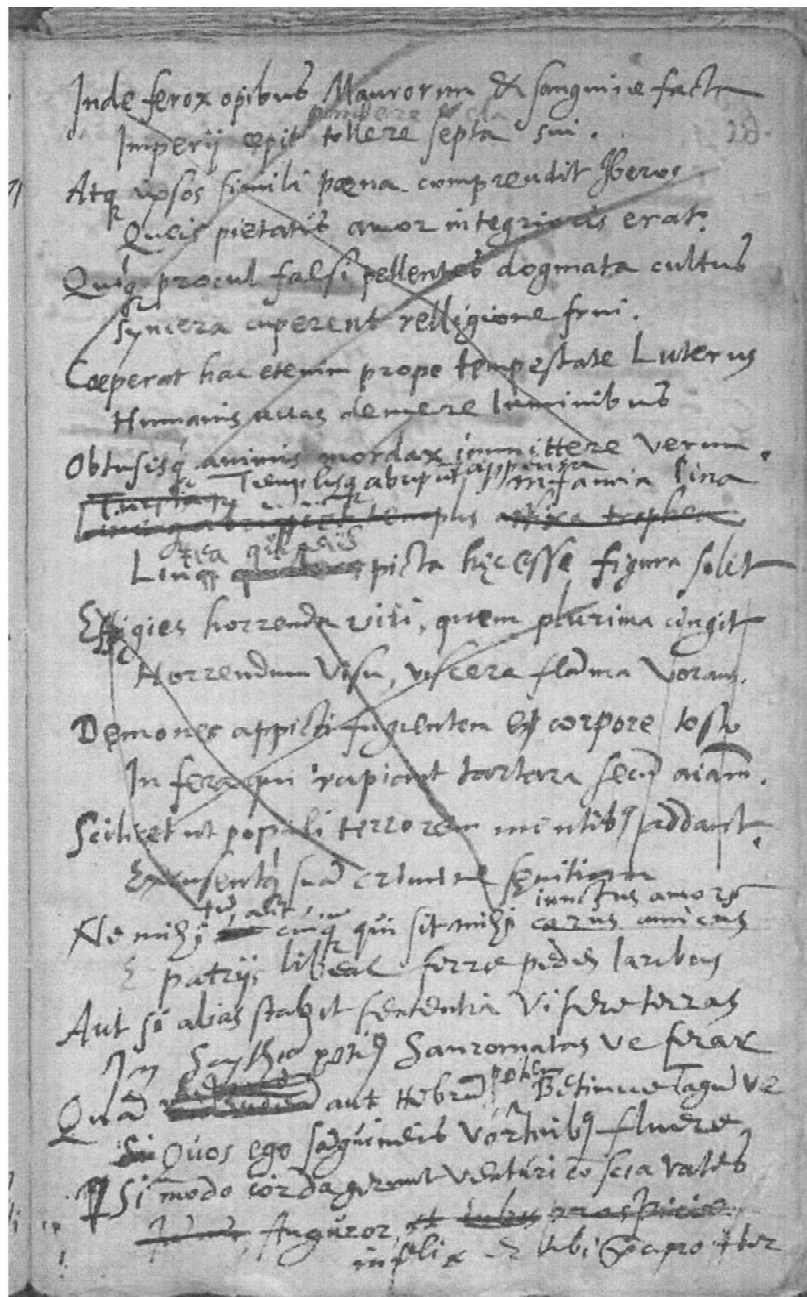 Inde ferox opibus Maurorum & sanguine facta
rumpere
Imperij cepit tollere septa sui.
Atq ipsos simili pœna comprendit Iberos
Queis pietatis amor integrioris erat.
Quiq procul falsi pellentes dogmata cultus
Syncera cuperent relligione frui.
Cœperat hac etenim prope tempestate Luterus
Humanis uuas demere luminibus
Obtusisq animis mordax immittere verum.
Templisq appensa infamia lina
templis affixa trophea
Linq picta hic esse figura solet
Effigies horrenda viri, quem plurima cingit
Horrendum visu, viscera flama vorans.
Demones appicti fugientem ex corpore tosto
In fera qui rapiant tartara secu aiam.
Scilicet ut populi terrorem mentib addant.
Excusentq sua crimine seuitiam
iunctus amore
Ne mihi cuiq qui sit mihi carus amicus
E patrijs libeat ferre pedes laribus
Aut si alias stabit sententia visere terras
potius Sauromatas ve ferax
Qua aut Hebru petet Betimue Tagu ve
Quos ego saguineis vorticib fluere
Si modo corda gerunt venturi coscia vates
Auguror, et prospicio
infelix & Iter